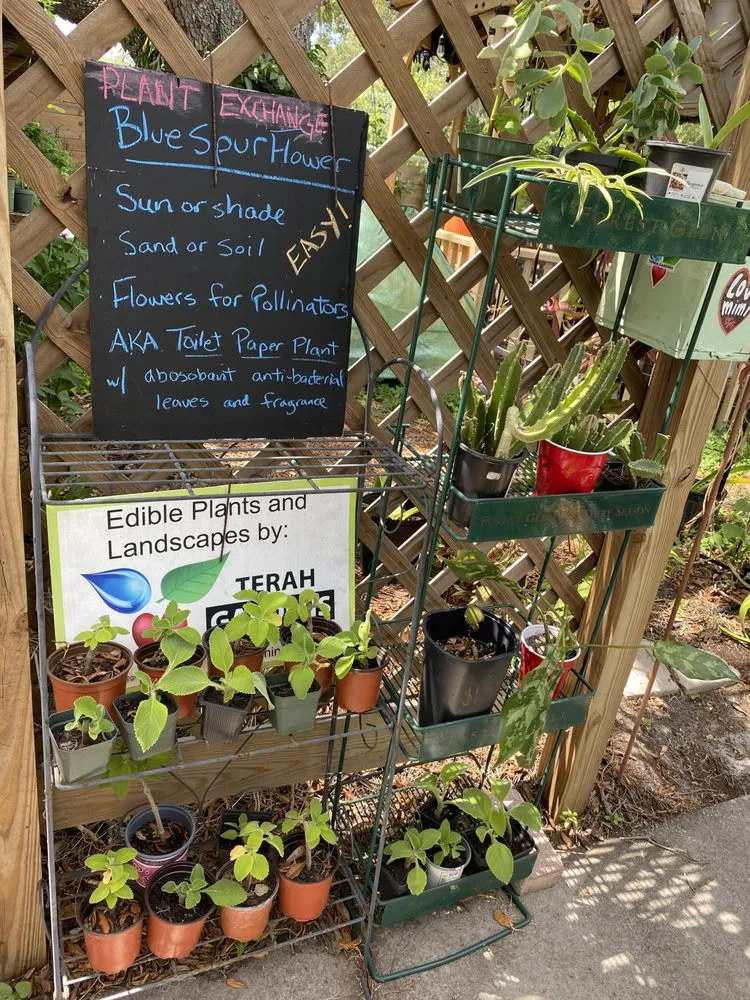 PLANT EXCHANGE
Blue Spur Flower
Sun or shade
Sand or Soil
EASY!
Flowers for Pollinators
AKA Toilet Paper Plant
w/ abosobant anti-bacterial
leaves and fragrance
Edible Plants and
Landscapes by:
TERAH
FOREST GLEN
FOREST GLEN EVERY SEASON